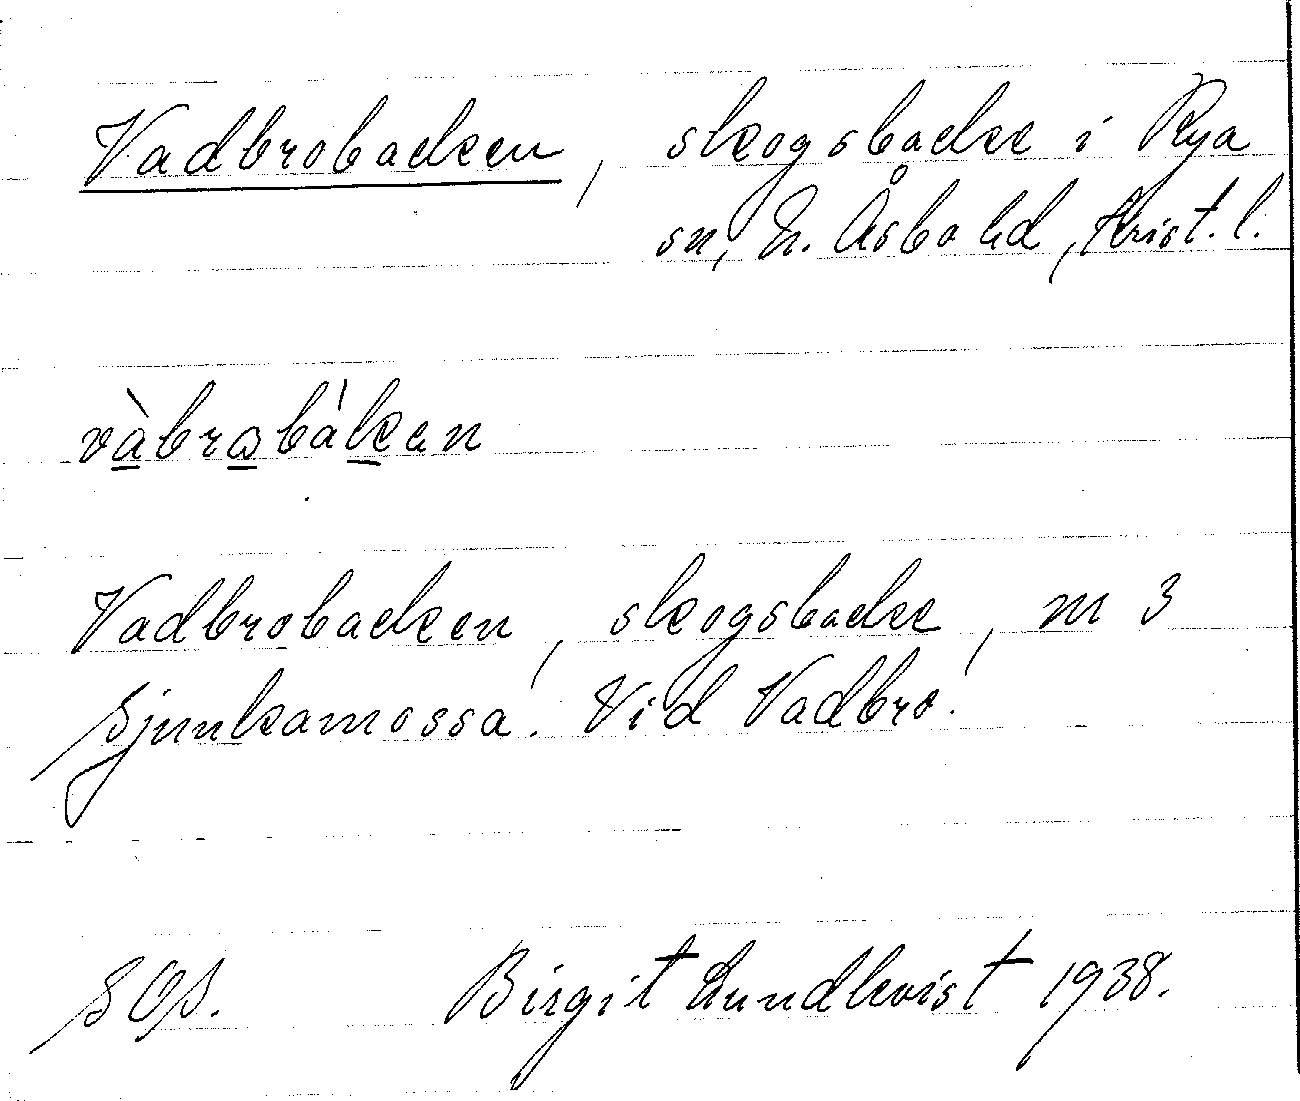 Vadbrobacken, skogsbacke i Rya
sn, N. Åsbo hd, Krist. l.
vàbrobák̲en
Vadbrobacken, skogsbacke, m 3
Sjunkamossa. Vid Vadbro.
SOS. Birgit Lundkvist 1938.